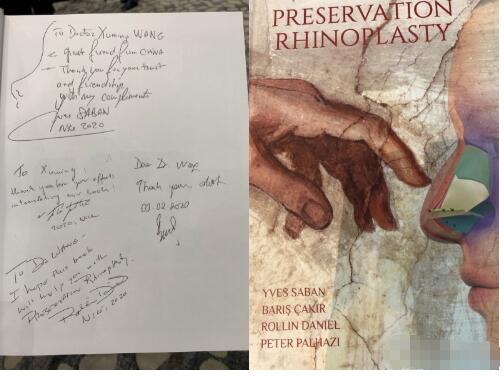 To Doctor Xuming WANG
great friend from CHINA
Thank you for your trust
and friendship
with my compliments
Yves SABAN
Nice 2020
To Xuming
thank you for your efforts
in translating our book!
2020, Nice
Dear Dr. Wang
Thank you
02.2020
To Dr WANG
I hope this book
will help you with
Preservation Rhinoplasty.
Nice, 2020
PRESERVATION
RHINOPLASTY
YVES SABAN
BARIŞ ÇAKIR
ROLLIN DANIEL
PETER PALHAZI